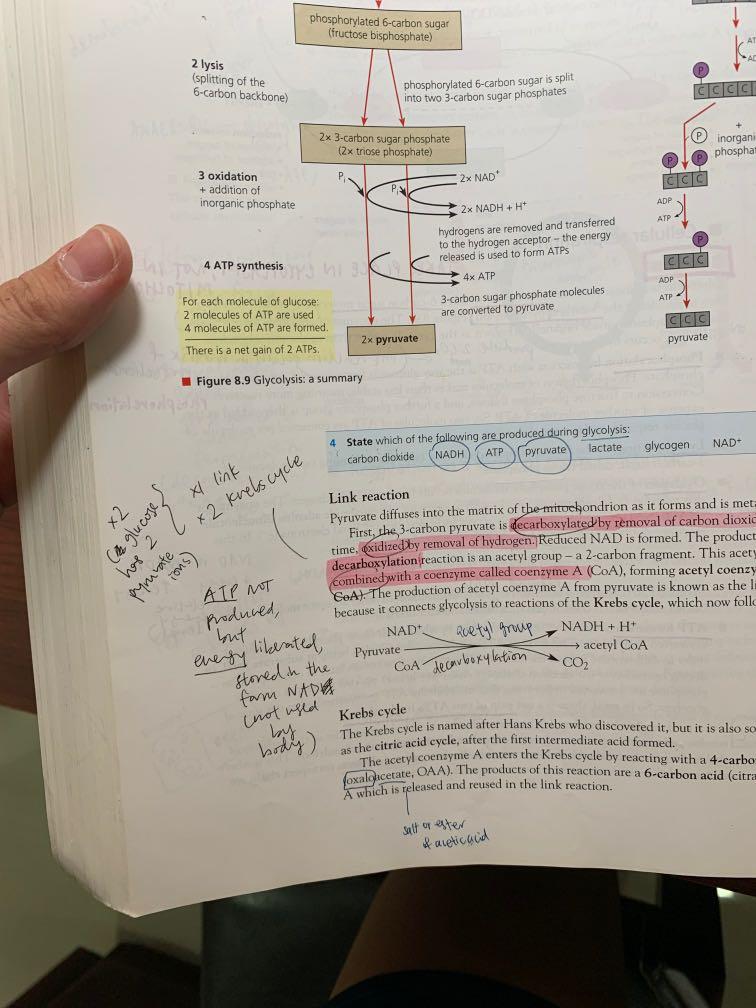 phosphorylated 6-carbon sugar
(fructose bisphosphate)
2 lysis
(splitting of the
6-carbon backbone)
phosphorylated 6-carbon sugar is split
into two 3-carbon sugar phosphates
2x 3-carbon sugar phosphate
(2x triose phosphate)
3 oxidation
+ addition of
inorganic phosphate
Pi
Pi
2x NAD+
2x NADH + H+
hydrogens are removed and transferred
to the hydrogen acceptor – the energy
released is used to form ATPs
4 ATP synthesis
4x ATP
3-carbon sugar phosphate molecules
are converted to pyruvate
For each molecule of glucose:
2 molecules of ATP are used
4 molecules of ATP are formed.
There is a net gain of 2 ATPs.
2x pyruvate
P
C C C C
+
P
inorgani
phosphat
P P
C C C
ADP
ATP
P
C C C
ADP
ATP
C C C
pyruvate
Figure 8.9 Glycolysis: a summary
4 State which of the following are produced during glycolysis:
carbon dioxide NADH ATP pyruvate lactate glycogen NAD+
x1 link
x2 Krebs cycle
x2
glucose
has 2
pyruvate
ions)
Link reaction
Pyruvate diffuses into the matrix of the mitochondrion as it forms and is meta
First, the 3-carbon pyruvate is decarboxylated by removal of carbon dioxid
time, oxidized by removal of hydrogen. Reduced NAD is formed. The product
decarboxylation reaction is an acetyl group – a 2-carbon fragment. This acety
combined with a coenzyme called coenzyme A (CoA), forming acetyl coenzy
CoA). The production of acetyl coenzyme A from pyruvate is known as the li
because it connects glycolysis to reactions of the Krebs cycle, which now follo
ATP not
produced,
but
energy liberated,
stored in the
form
(not used
by
body)
NAD+ acetyl group NADH + H+
Pyruvate acetyl CoA
CoA decarboxylation CO2
Krebs cycle
The Krebs cycle is named after Hans Krebs who discovered it, but it is also so
as the citric acid cycle, after the first intermediate acid formed.
The acetyl coenzyme A enters the Krebs cycle by reacting with a 4-carbo
(oxaloacetate, OAA). The products of this reaction are a 6-carbon acid (citra
A which is released and reused in the link reaction.
salt or ester
of acetic acid